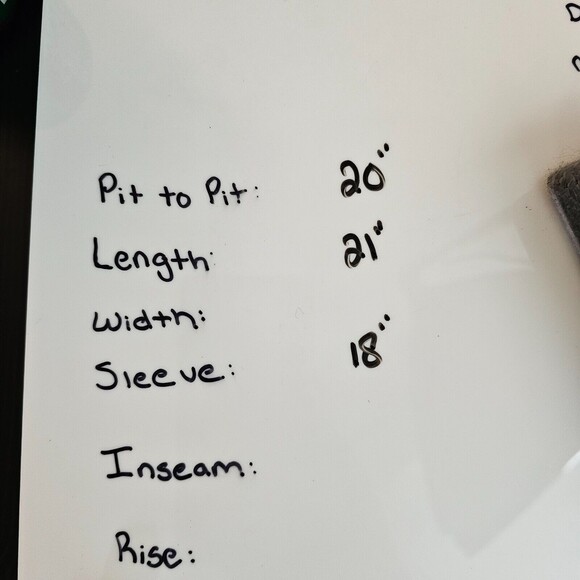 Pit to Pit: 20"
Length: 21"
Width:
Sleeve: 18"
Inseam:
Rise: